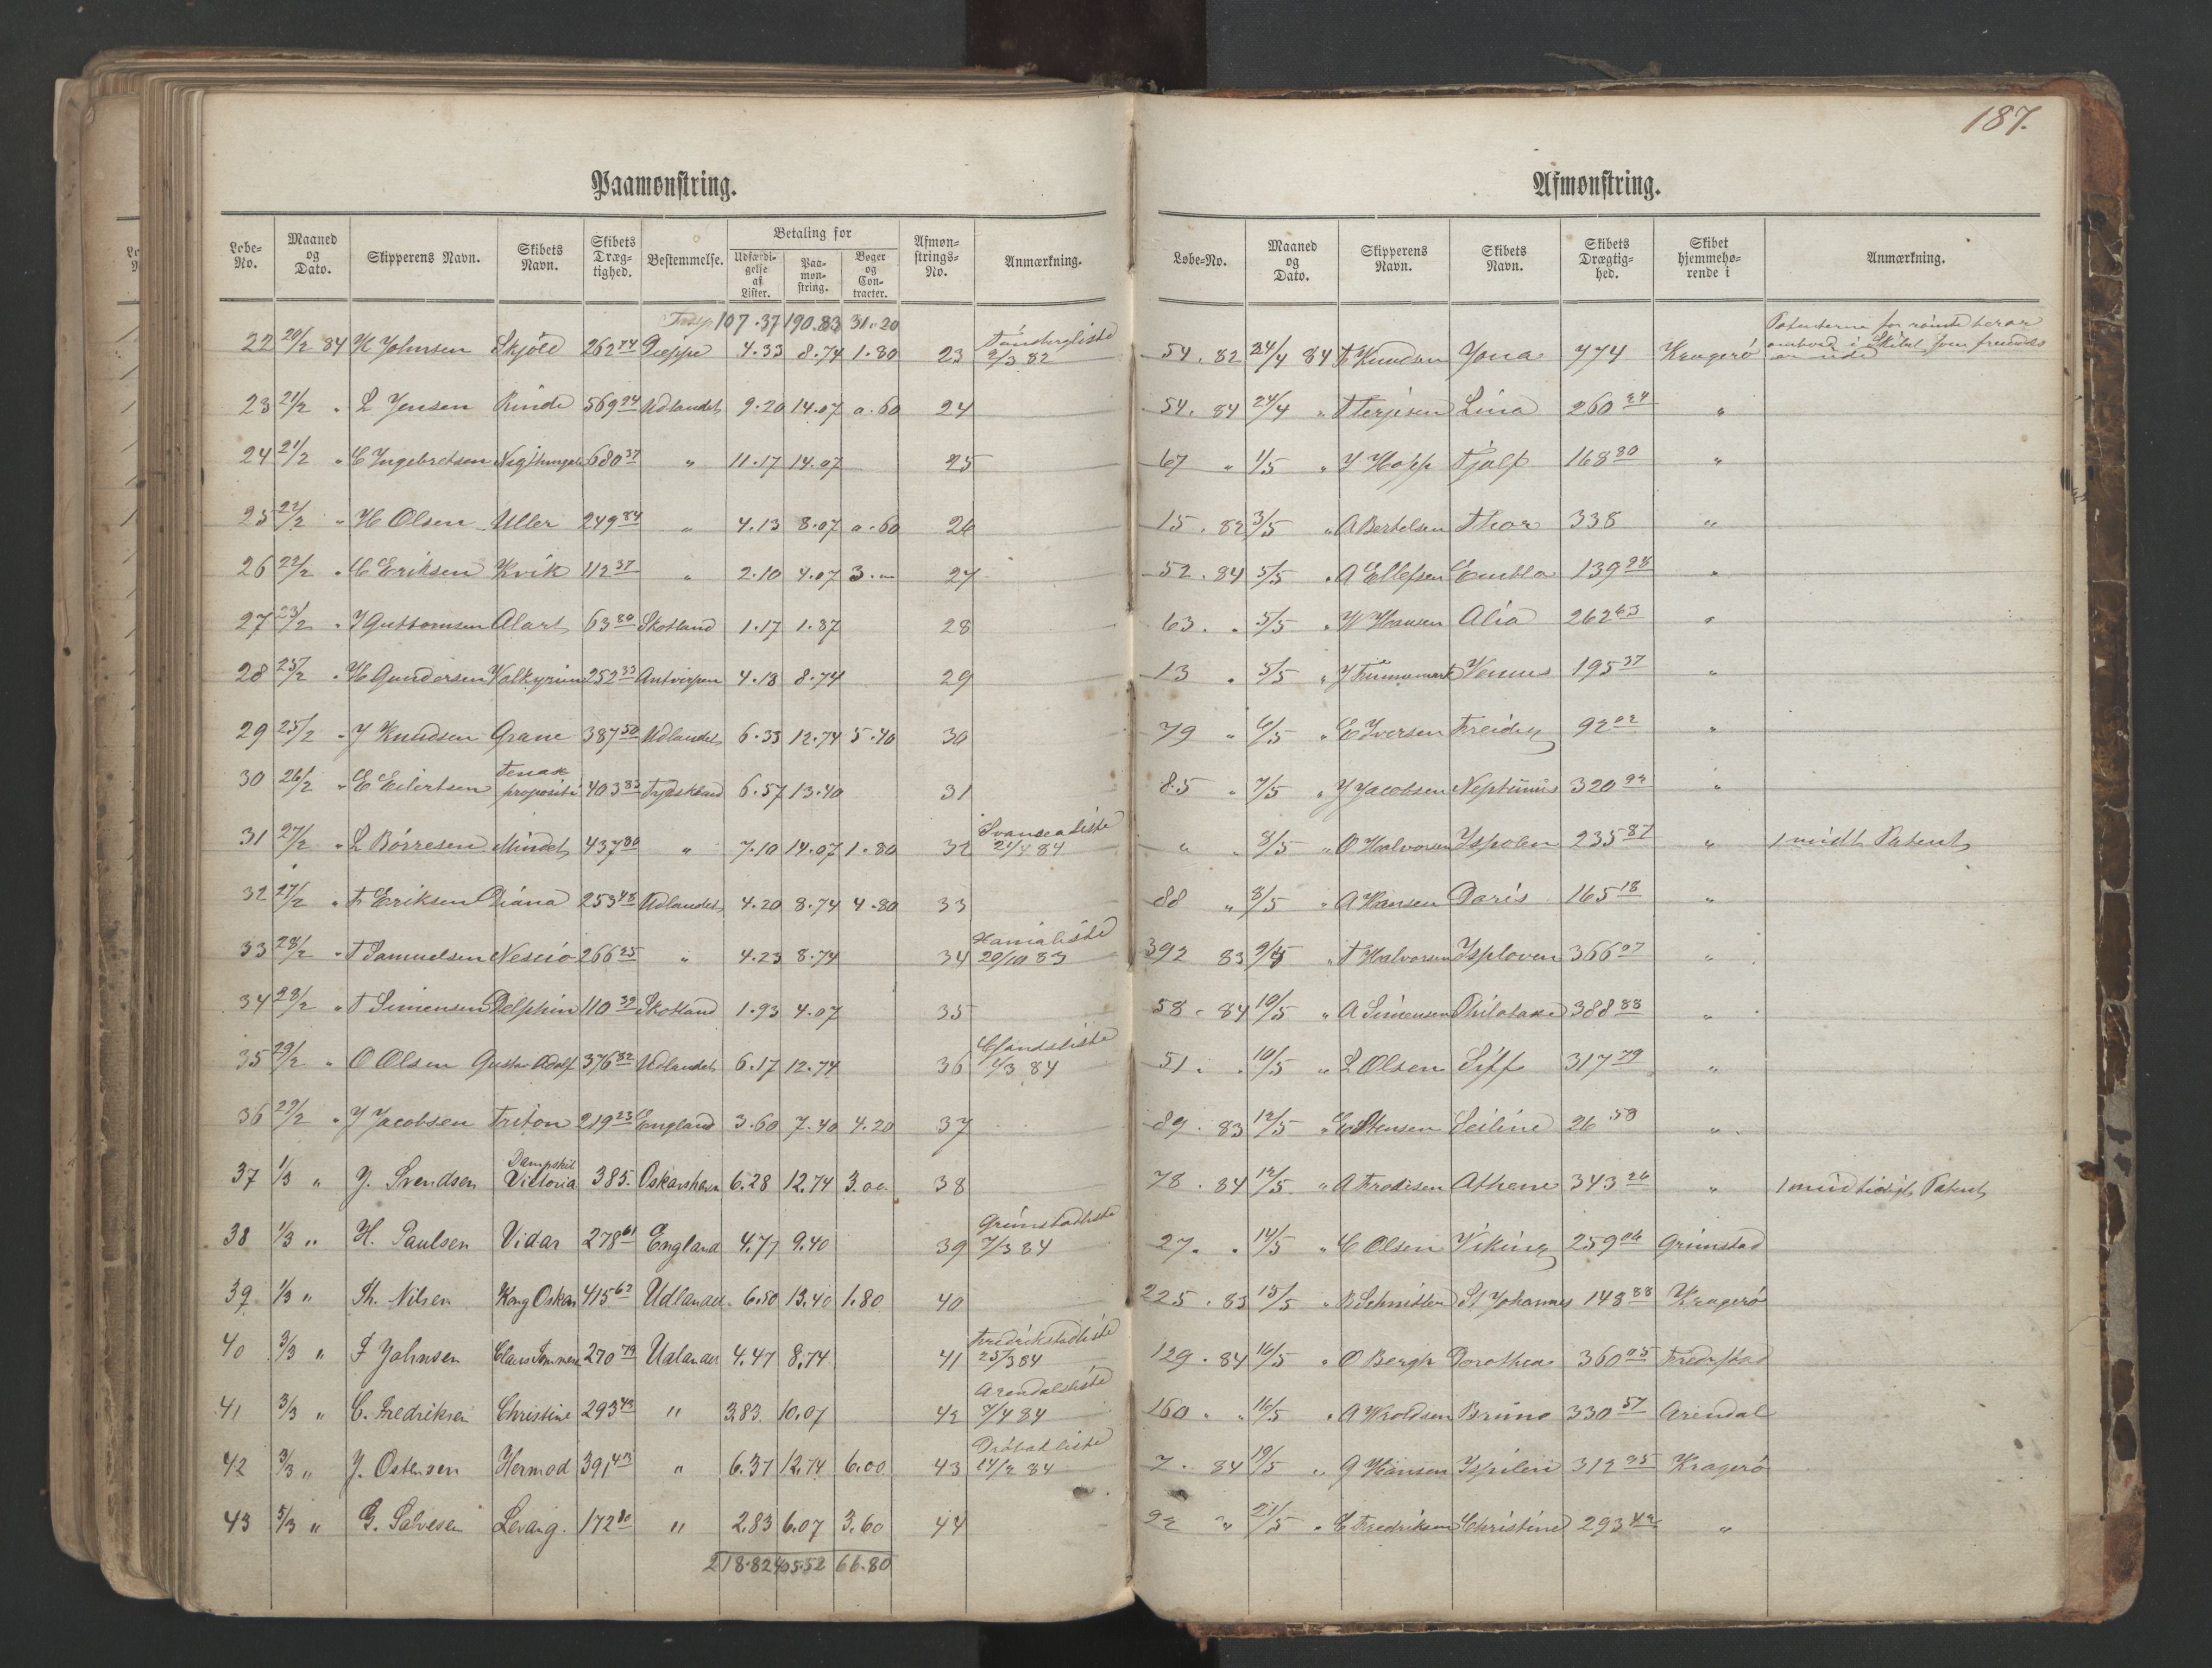 187.
Paamønstring.
Løbe-No. Maaned og Dato. Skipperens Navn. Skibets Navn. Skibets Dræg-tighed. Bestemmelse. Betaling for Udfærdi-gelse af Lister. Paa-møn-string. Bøger og Con-tracter. Afmøn-strings-No. Anmærkning.
107.37 190.83 31.20
22 20/2 84 K Johnsen Skjöld 262 74 Dieppe 4.33 8.74 1.80 23 Tönsbergliste 2/3 82
23 21/2 " L Jensen Rinde 569 24 Udlandet 9.20 14.07 0.60 24
24 21/2 " C Ingebretsen 680 37 " 11.17 14.07 25
25 22/2 " H Olsen Uller 249 84 " 4.13 8.07 0.60 26
26 22/2 " C Eriksen Kvik 112 37 " 2.10 4.07 3." 27
27 23/2 " J Guttormsen Alart 63 80 Skotland 1.17 1.87 28
28 25/2 " H Gundersen Valkyrien 252 33 Antverpen 4.18 8.74 29
29 25/2 " J Knudsen Grane 387 50 Udlandet 6.33 12.74 5.40 30
30 26/2 " E Eilertsen Tenax propositi 403 83 Tydskland 6.57 13.40 31
31 27/2 " L Börresen Mindet 437 80 " 7.10 14.07 1.80 32 Svansealiste 84
32 27/2 " F Eriksen Diana 253 48 Udlandet 4.20 8.74 4.80 33
33 28/2 " T Samuelsen 266 25 " 4.23 8.74 34 20/10 83
34 28/2 " T Simensen Delphin 110 32 Skotland 1.93 4.07 35
35 29/2 " O Olsen Gustav Adolf 376 32 Udlandet 6.17 12.74 36 84
36 29/2 " J Jacobsen Triton 219 23 England 3.60 7.40 4.20 37
37 1/3 " J. Svendsen Dampskib Viktoria 385. Oskarshavn 6.28 12.74 3.00 38
38 1/3 " H. Paulsen Vidar 278 61 England 4.77 9.40 39 Grimstadliste 7/3 84
39 1/3 " Th. Nilsen Kong Oskar 415 67 Udlandet 6.50 13.40 1.80 40
40 3/3 " F Johnsen 270 79 Udlandet 4.47 8.74 41 Fredrikstadliste 25/3 84
41 3/3 " C. Fredriksen Christine 293 43 " 3.83 10.07 42 Arendalsliste 7/4 84
42 3/3 " J. Ostensen Hermod 391 43 " 6.37 12.74 6.00 43 Dröbakliste 84
43 5/3 " G. Salvesen Levang. 172 80 " 2.83 6.07 3.60 44
218.82 405.52 66.80
Afmønstring.
Løbe-No. Maaned og Dato. Skipperens Navn. Skibets Navn. Skibets Drægtig-hed. Skibet hjemmehø-rende i Anmærkning.
54. 82 24/4 84 F Knudsen Jona 774 Kragerö
54. 84 24/4 " T Terjesen Lina 260 24 "
67 " 1/5 " J Hopp Fjalp 168 80 "
15. 82 3/5 " A Bertelsen Thor 338 "
52. 84 5/5 " A Ellefsen Embla 139 28 "
63. " 5/5 " W Hansen Alia 262 63 "
13 " 5/5 " J Finnemark Venus 195 37 "
79 " 6/5 " E Iversen Freidig 92 02 "
85 " 7/5 " J Jacobsen Neptunus 320 22 "
" " 8/5 " O Halvorsen Ispolen 235 87 " 1 midt Patent
88 " 8/5 " A Hansen Doris 165 18 "
392 83 9/5 " T Halvorsen 366 07 "
58. 84 10/5 " A Simensen 388 88 "
51. " 10/5 " L Olsen Siff 317 79 "
89. 83 12/5 " Seiline 26 58 "
78. 84 12/5 " A Fredisen Athene 343 26 " 1 midtidigt Patent
27. " 14/5 " C Olsen Viking 259 06 Grimstad
225. 83 15/5 " St Johannes 148 88 Kragerö
129. 84 16/5 " O Bergh Dorothea 360 05 Fredrstad
160 " " 16/5 " A Kroldsen Bruno 330 57 Arendal
7. 84 19/5 " G Hansen 312 95 Kragerö
92 " 21/5 " C Fredriksen Christine 293 42 "